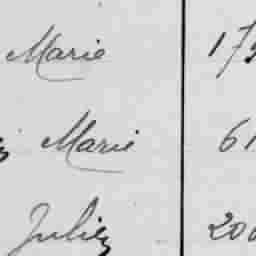 Marie 175
Marie 61
Julien 200